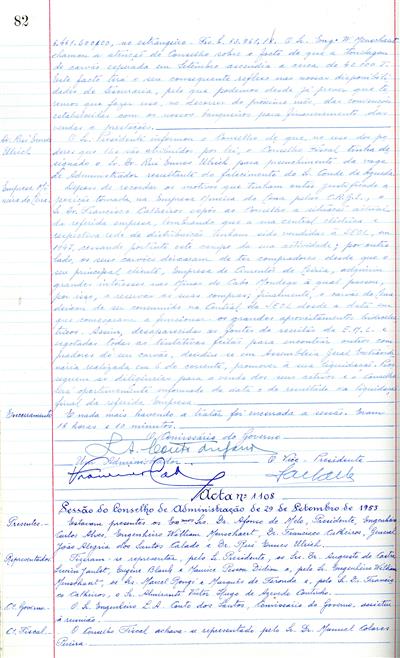 82
6.461.500$00, no estrangeiro - Frs. b. 13.961,18. O Sr. Engº W. Munschaert
chamou a atenção do Conselho sobre o facto de que a tonelagem
de carvão expedida em Setembro ascendia a cerca de 40.000 T.
Este facto terá o seu consequente reflexo nas nossas disponibili-
dades de Tesouraria, pelo que podemos desde já prever que te-
remos que fazer uso, no decorrer do próximo mês, das convenções
celebradas com os nossos banqueiros para financiamento das
vendas a prestações.
Dr. Rui Ennes Ulrich
O Sr. Presidente informou o Conselho de que, no uso dos po-
deres que lhe são atribuídos por lei, o Conselho Fiscal tinha de-
signado o Sr. Dr. Rui Ennes Ulrich para preenchimento da vaga
de Administrador resultante do falecimento do Sr. Conde de Agueda.
Empresa Mi-
neira do Lena
Depois de recordar os motivos que tinham antes justificado a
posição tomada na Empresa Mineira do Lena pelos C.R.G.L., o
Sr. Dr. Francisco Calheiros expôs ao Conselho a situação actual
da referida empresa, lembrando que a sua central eléctrica e
respectiva rede de distribuição tinham sido vendidas à SEOL, em
1947, cessando portanto este campo da sua actividade; por outro
lado, os seus carvões deixaram de ter compradores desde que o
seu principal cliente, Empresa de Cimentos de Leiria, adquiriu
grandes interesses nas Minas do Cabo Mondego à qual passou,
por isso, a reservar as suas compras; finalmente, o carvão do Lena
deixou de ser consumido na Central da SEOL desde a data em
que começaram a funcionar os grandes aproveitamentos hidroeléc-
tricos. Assim, desaparecidas as fontes de receitas da E.M.L. e
esgotadas todas as tentativas feitas para encontrar outros com-
pradores do seu carvão, decidiu-se em Assembleia Geral Extraordi-
nária realizada em 5 do corrente, promover a sua liquidação. Pros-
seguem as diligências para a venda dos seus activos e o Conselho
será oportunamente informado da data e do resultado da liquidação
final da referida Empresa.
Encerramento
E nada mais havendo a tratar foi encerrada a sessão. Eram
18 horas e 10 minutos.
O Comissário do Governo
O Vice-Presidente
Acta nº 1108
Sessão do Conselho de Administração de 29 de Setembro de 1953
Presentes
Estavam presentes os Exmos Srs. Dr. Afonso de Melo, Presidente, Engenheiro
Carlos Alves, Engenheiro William Munschaert, Dr. Francisco Calheiros, General
João Alegria dos Santos Calado e Dr. Rui Ennes Ulrich.
Representados
Fizeram-se representar pelo Sr. Presidente, os Srs. Dr. Augusto de Castro,
Eugène Blank e Maurice Pisson Didion e, pelo Sr. Engenheiro William
Munschaert, os Srs. Marcel Rengi e Marquês de Faronda e, pelo Sr. Dr. Francis-
co Calheiros, o Sr. Almirante Victor Hugo de Azevedo Coutinho.
Ct. Governo
O Sr. Engenheiro L.A. Couto dos Santos, Comissário do Governo, assistiu
à reunião.
Ct. Fiscal
O Conselho Fiscal achava-se representado pelo Sr. Dr. Manuel Colares
Pereira.